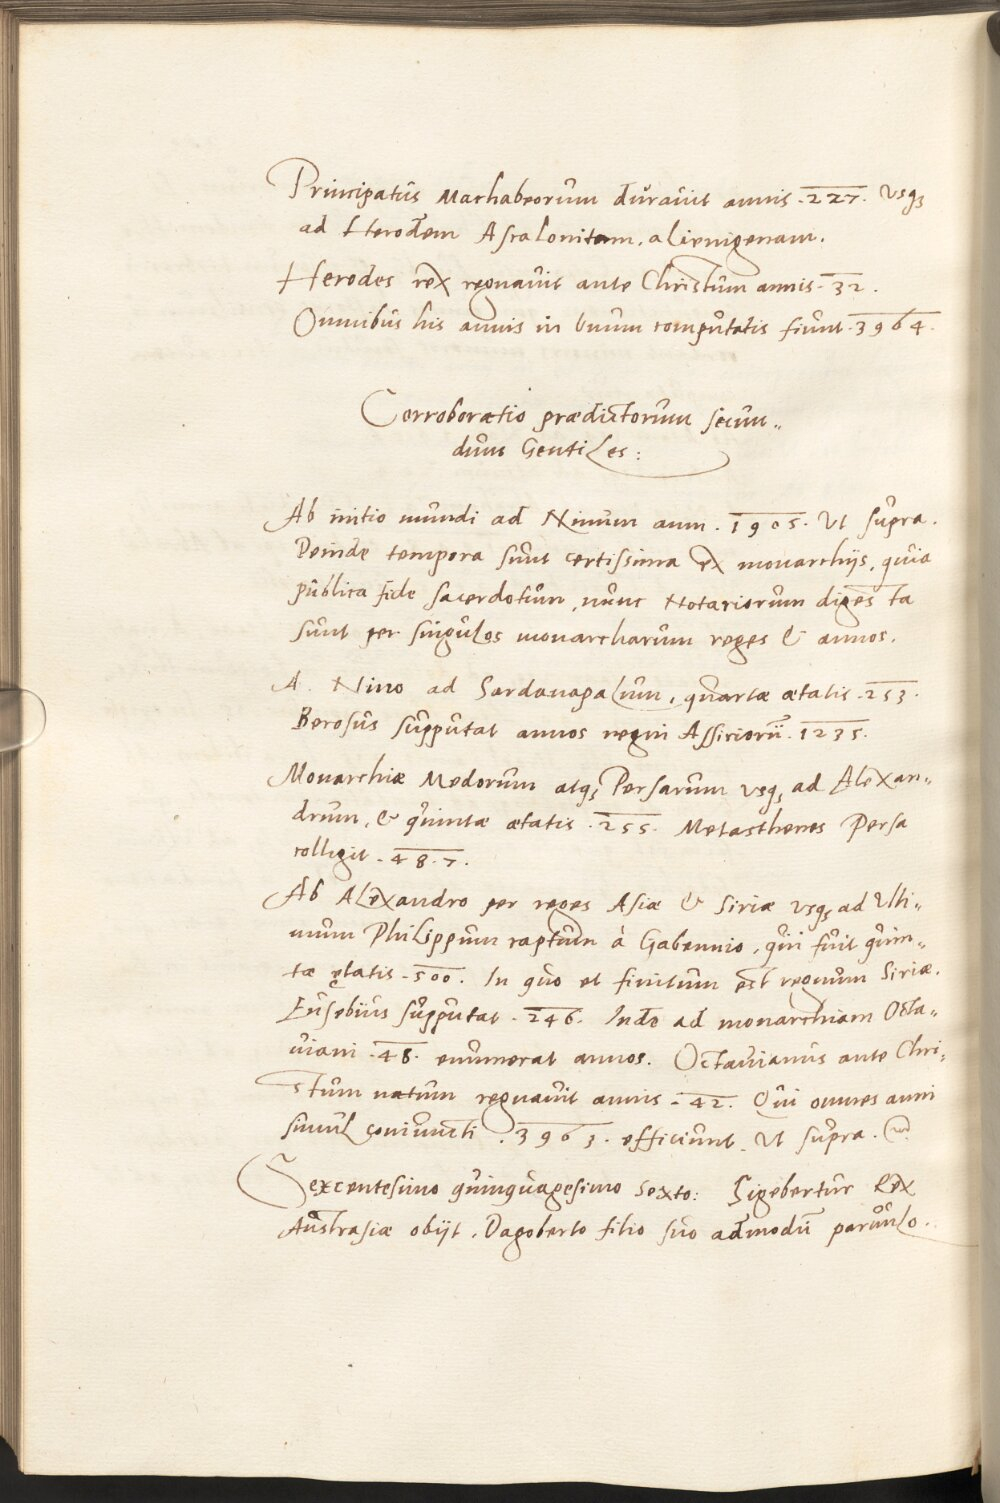 Principatus Machabeorum duravit annis .227. usq₃
ad Herodem Ascalonitam, alienigenam.
Herodes rex regnavit ante Christum annis .32.
Omnibus his annis in unum computatis fiunt .3964.
Corroboratio prædictorum secun„
dum Gentiles:
Ab initio mundi ad Ninum ann. 1905. ut supra.
Deinde tempora sunt certissima ex monarchijs, quia
publica fide sacerdotum, nunc Notariorum digesta
sunt per singulos monarcharum reges & annos.
A. Nino ad Sardanapalum, quartæ ætatis .253.
Berosus supputat annos regni Assiriorū .1235.
Monarchiæ Medorum atq₃ Persarum usq₃ ad Alexan„
drum, & quintæ ætatis .255. Metasthenes Persa
colligit .487.
Ab Alexandro per reges Asiæ & Siriæ usq₃ ad Ulti„
mum Philippum raptum à Gabennio, qui fuit quin„
tæ ętatis .500. In quo et finitum est regnum Siriæ.
Eusebius supputat .246. Inde ad monarchiam Octa„
viani .48. enumerat annos. Octavianus ante Chri„
stum natum regnavit annis .42. Qui omnes anni
simul coniuncti .3963. efficiunt. ut supra.
Sexcentesimo quinquagesimo sexto: Sigebertur Rex
Austrasiæ obijt, Dagoberto filio suo admodū parvulo.